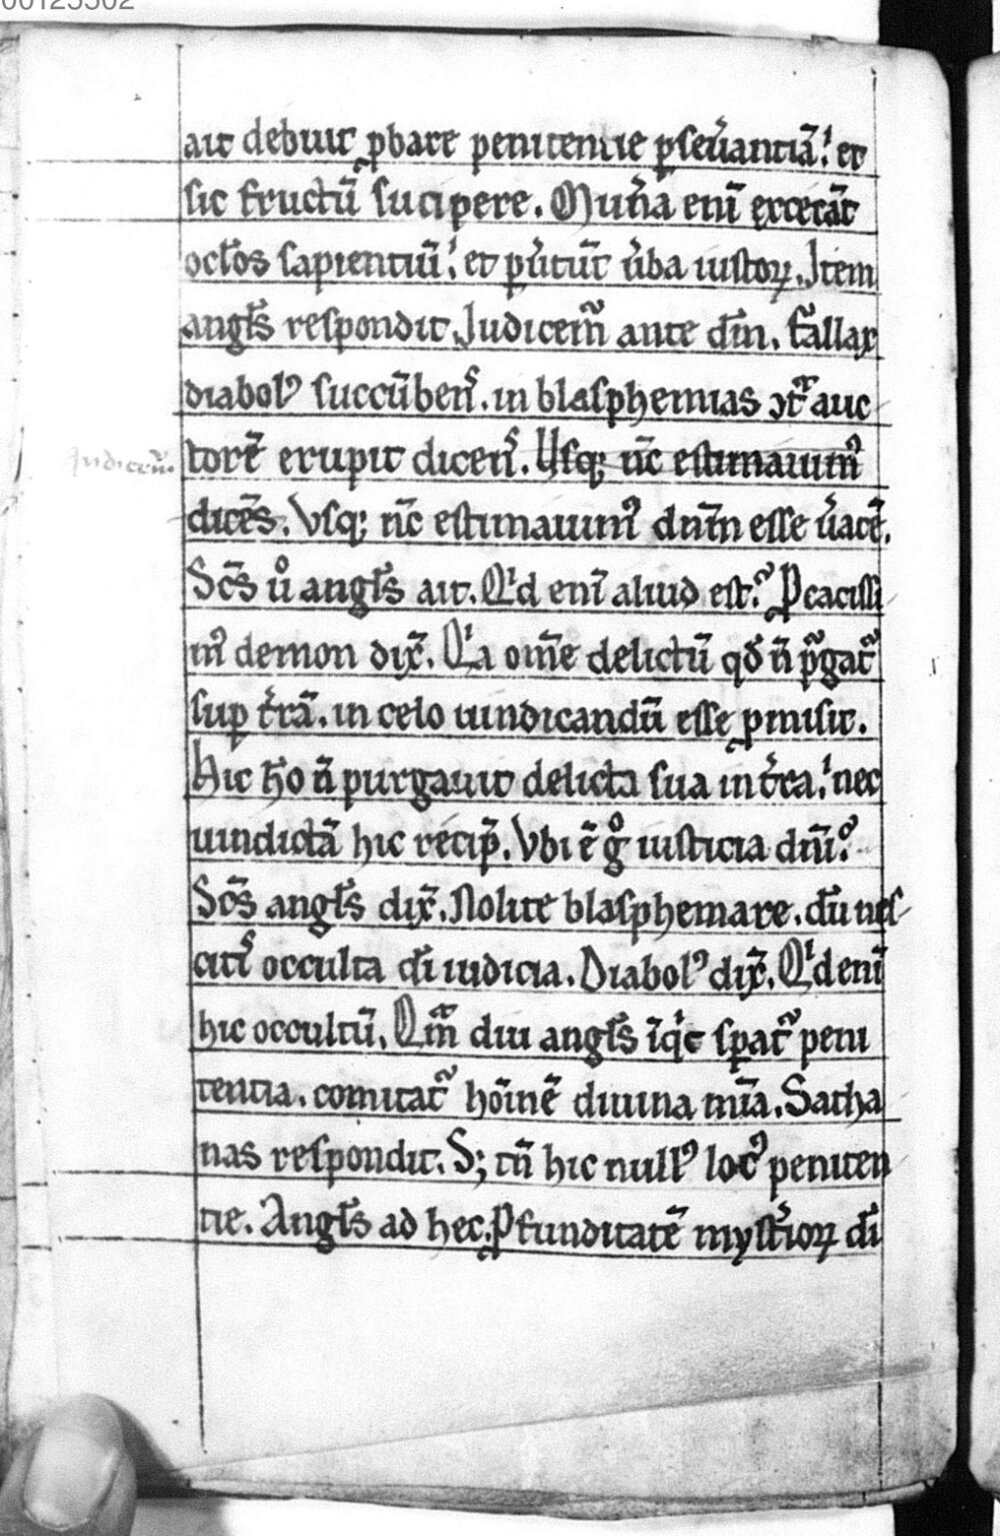 00125502
ait debuit ꝓbare penitentie ꝑseu̾antiã. et
sic fructũ sucipere. Mun̾a enĩ excecãt
ocl̃os sapientiũ. et pu̾tũt u̾ba iustoꝝ. Item
angl̃s respondit. Judicem᷑ ante dm̃. Fãllax
diabolꝰ succũbens. in blasphemias ↄt᷑ᵃ auc
torẽ erupit dicens. Usqꝫ nc̃ estimauimꝰ
Judicem᷑.
dicẽs. Vsqꝫ nc̃ estimauimꝰ dnm̃ esse u̾acẽ.
Sc̃s uͦ angl̃s ait. Qͥd enĩ aliud est. Ꝓcacissi
mꝰ demon dix̃. Qͥa om̃e delictũ qđ ñ p᷑gat᷑
sup t̾rã. in celo uindicandũ esse ꝓmisit.
Hic ho᷑ ñ purgauit delicta sua in t̾ra. nec
uindictã hic recip̃. Vbi ẽ gͦ iusticia dnĩ.
Sc̃s angl̃s dix̃. Nolite blasphemare. dũ nes
citis occulta dĩ iudicia. Diabolꝰ dix̃. Qͥd enĩ
hic occultũ. Qm̃ diu angl̃s ĩqͥt spat᷑ peni
tentia. comitat᷑ hoĩnẽ diuina mĩa. Satha
nas respondit. Sꝫ tñ hic nullꝰ locꝰ peniten
tie. Angl̃s ad hec. Ꝓfunditatẽ myst̾ioꝝ dĩ